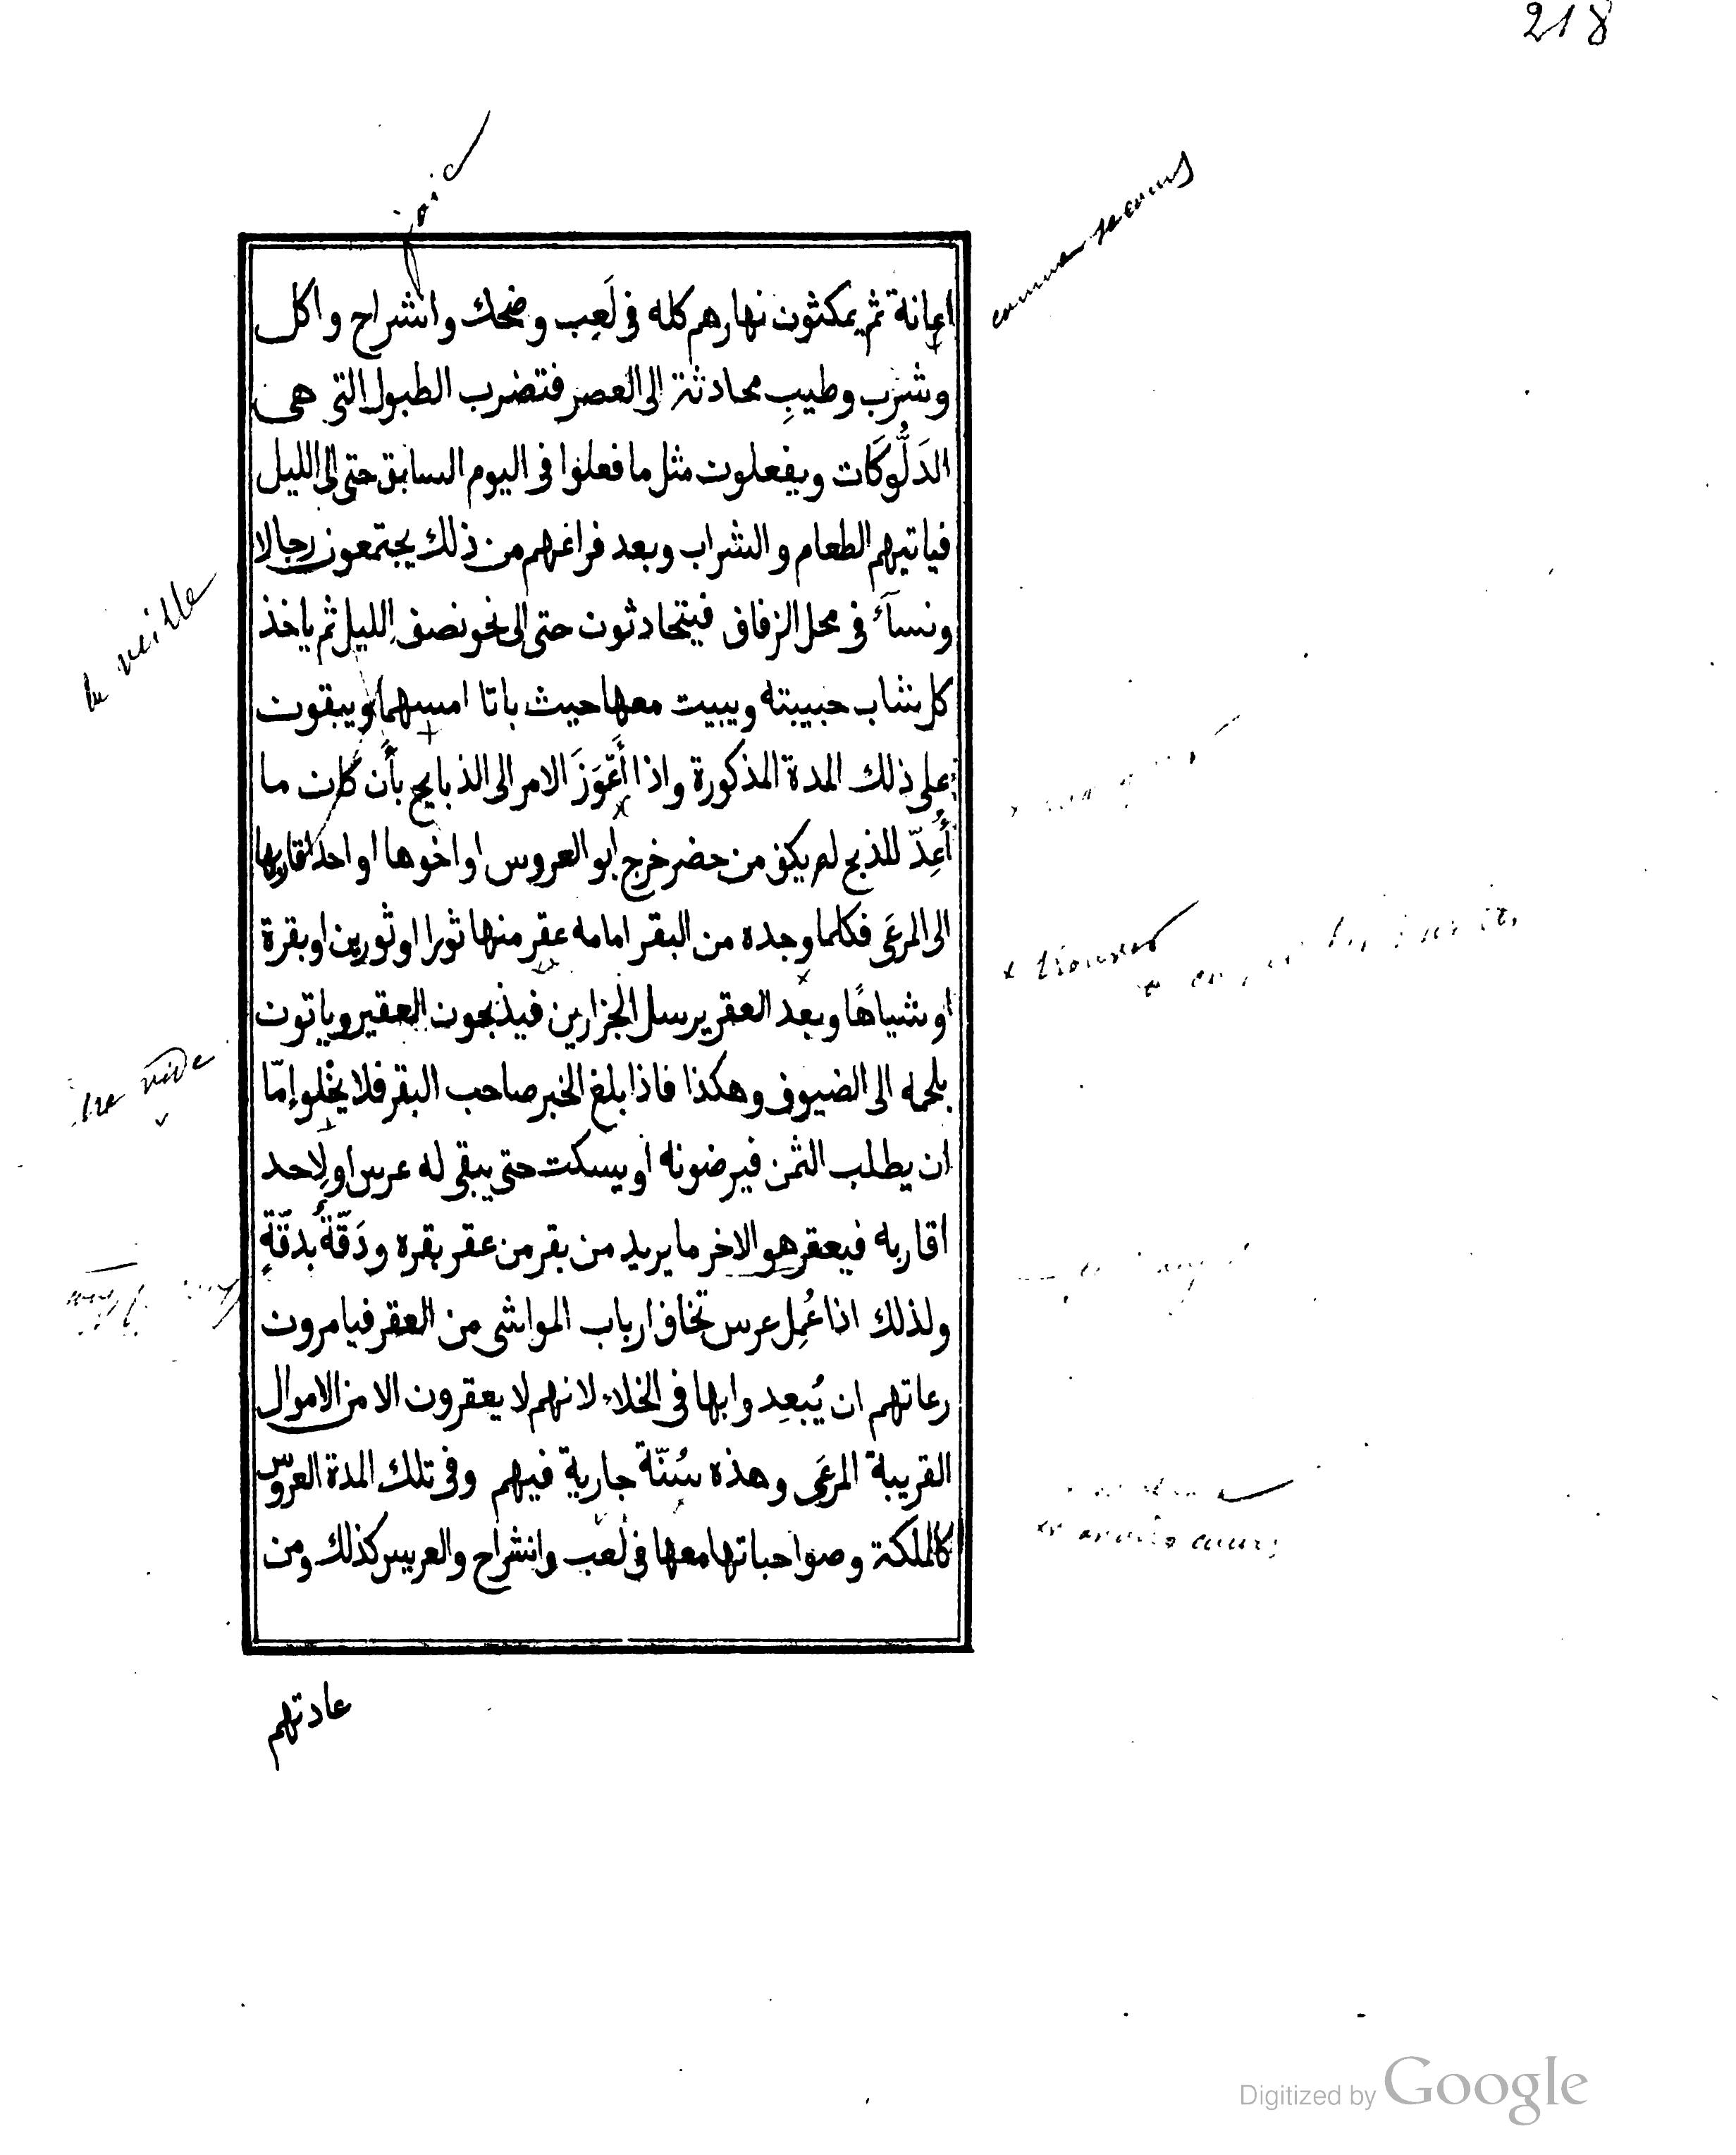 218
joie
comme secours
اعانة ثم يمكثون نهارهم كله فى لَعِب وضحك وانشراح واكل
وشرب وطيبِ محادثة الى العصر فتضرب الطبول التى هى
الدَلُّوكَات ويفعلون مثل ما فعلوا فى اليوم السابق حتى الى الليل
فياتيهم الطعام والشراب وبعد فراغهم من ذلك يجتمعون رجالا
ونسآءً فى محل الزفاف فيتحادثون حتى الى نحو نصف الليل ثم ياخذ
la veille
كل شاب حبيبته ويبيت معها حيث باتا امسهما ويبقون
على ذلك المدة المذكورة واذا أَعْوَزَ الامر الى الذبايح بأَن كان ما
أُعِدّ للذبح لم يكف من حضر خرج ابو العروس او اخوها او احد اقاربها
الى المرعَى فكلما وجده من البقر امامه عقر منها ثورا او ثورين او بقرة
او شياهًا وبعد العقر يرسل الجزارين فيذبحون العقير وياتون
بلحمه الى الضيوف وهكذا فاذا بلغ الخبر صاحب البقر فلا يخْلو إمّا
vide
ان يطلب الثمن فيرضونه او يسكت حتى يبقى له عرس او لِاحد
اقاربه فيعقر هو الاخر ما يريد من بقر من عقر بقره ودَقّةٌ بدقّةٍ
ولذلك اذا عُمِل عرس تخاف ارباب المواشى من العقر فيامرون
رعاتهم ان يُبعِدوا بها فى الخلاء لانهم لا يعقرون الا من الاموال
القريبة المرعَى وهذه سُنّة جارية فيهم وفى تلك المدة العروس
كالملكة وصواحباتها معها فى لعب وانشراح والعريس كذلك ومن
عادتهم
Digitized by Google